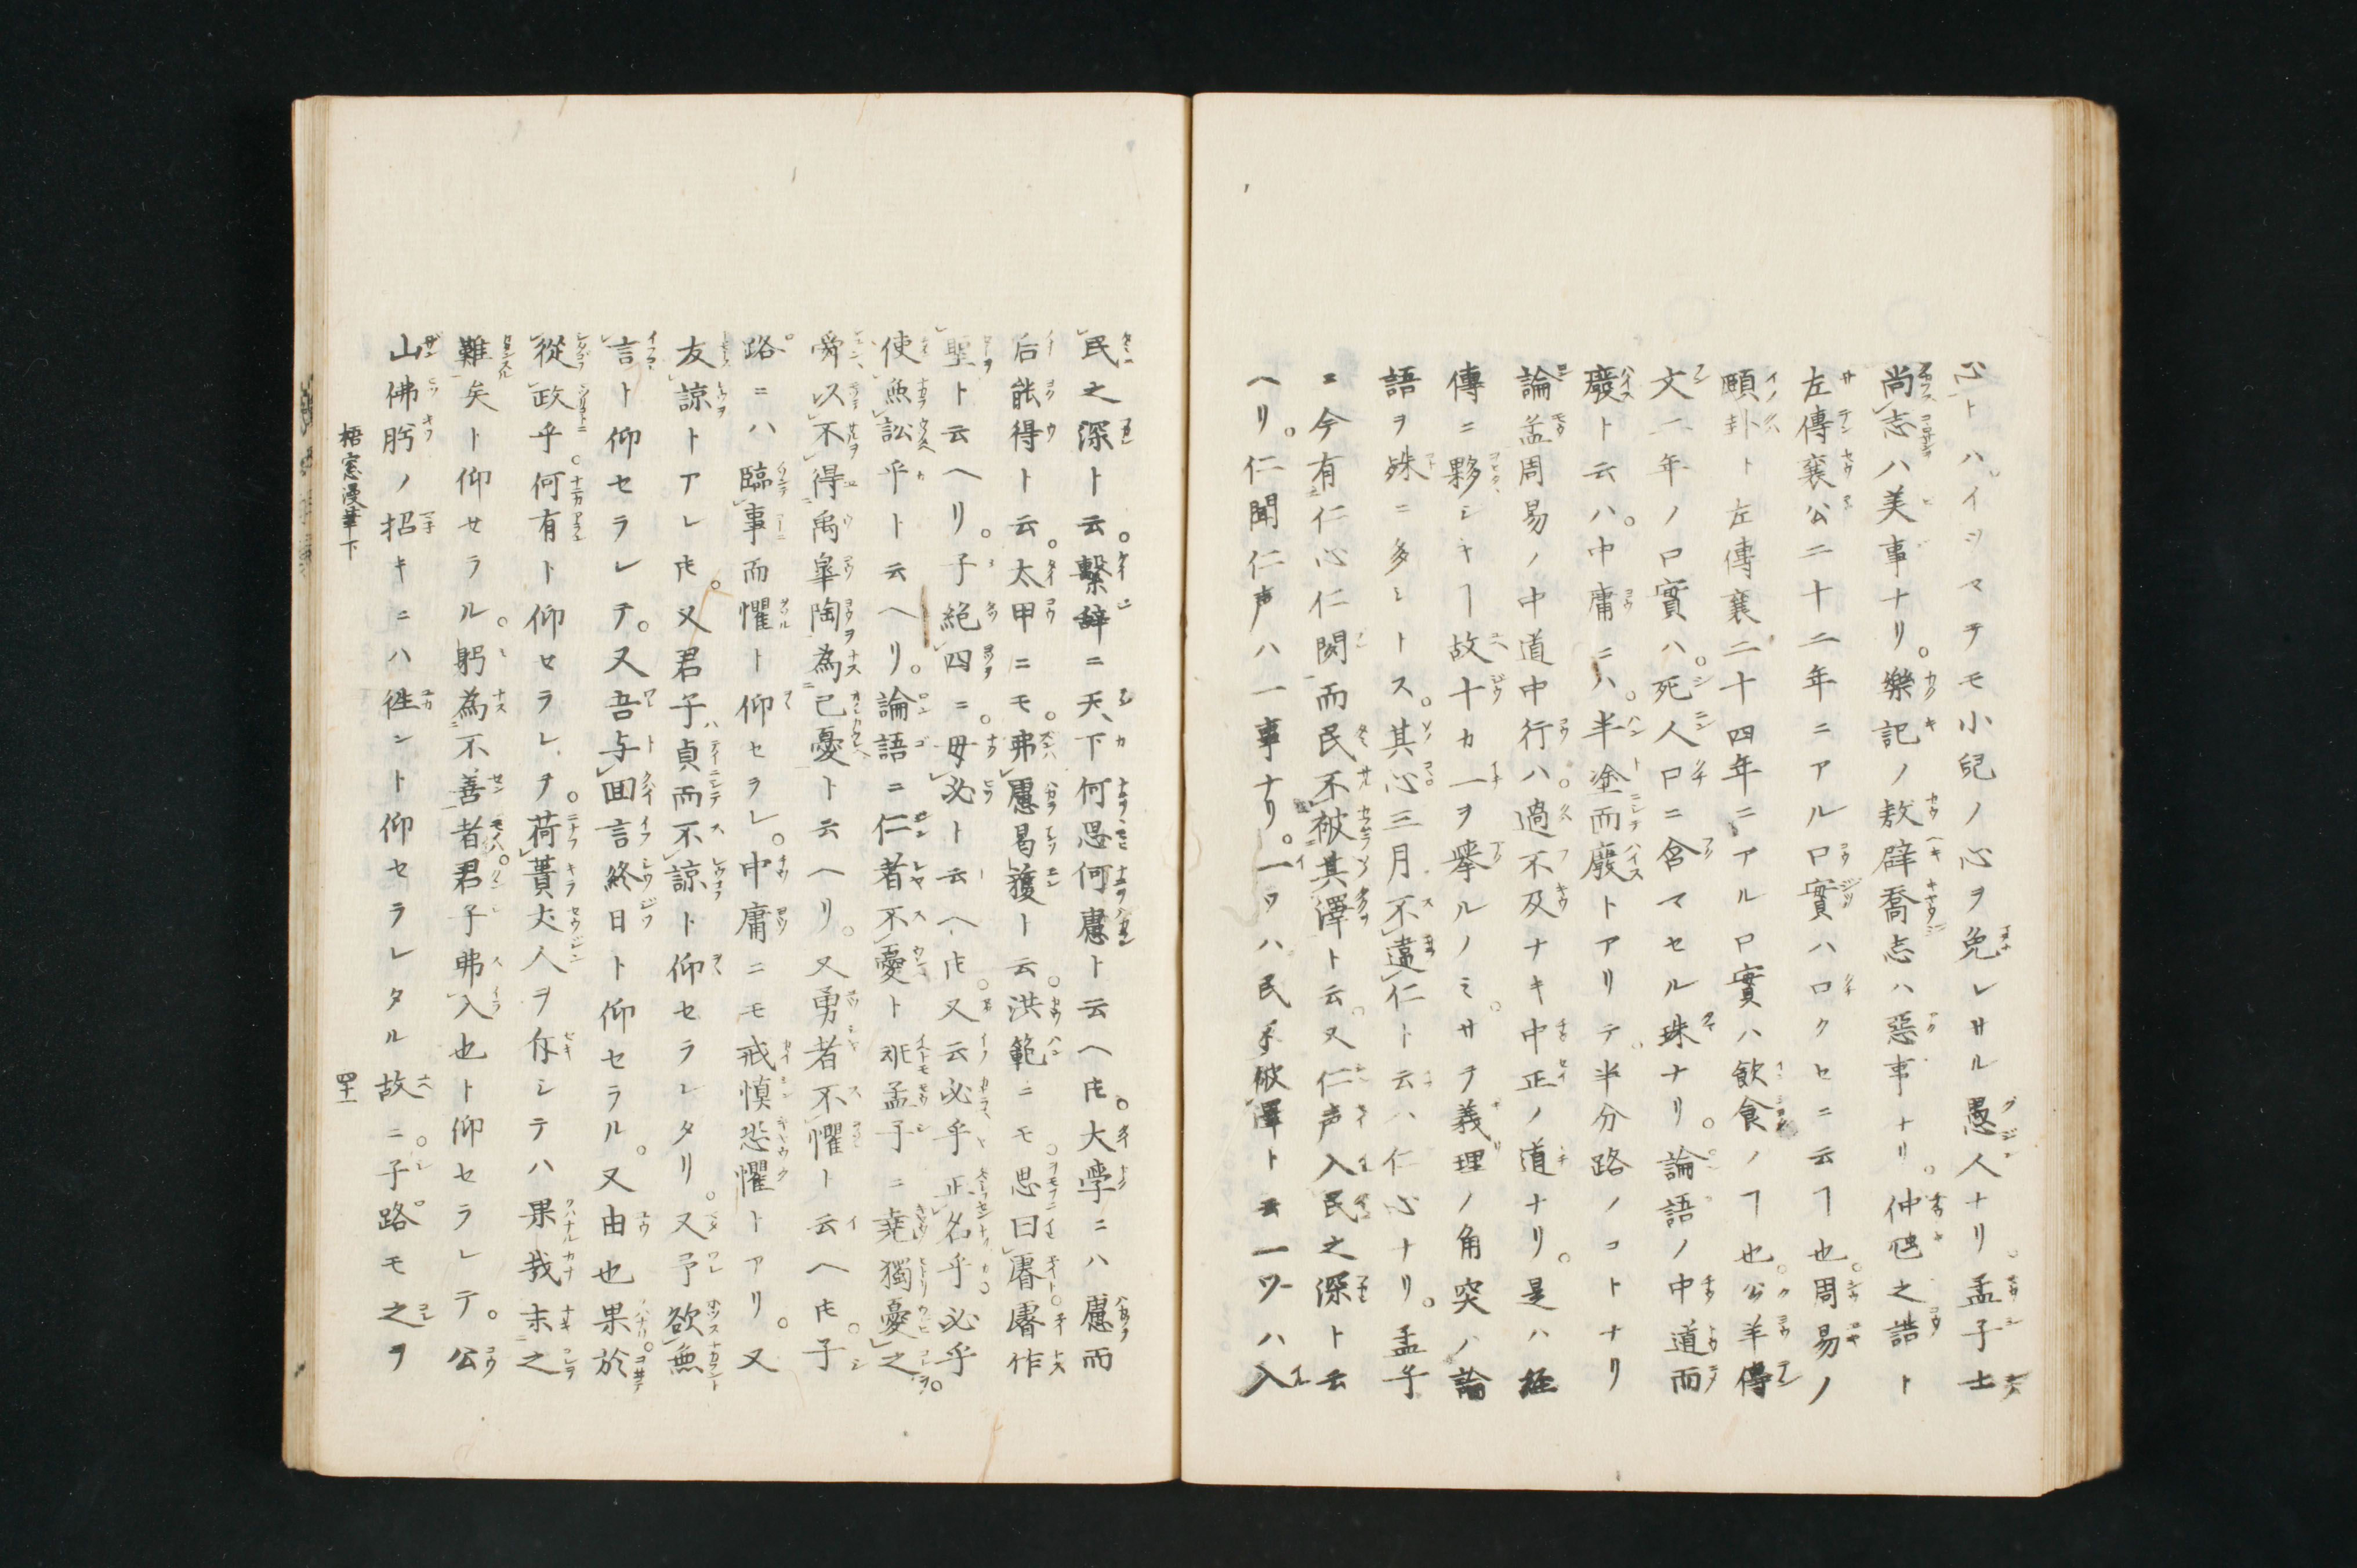 心トハイツマテモ小兒ノ心ヲ免レサル愚人ナリ。孟子士
尚志ハ美事ナリ。樂記ノ敖辟喬志ハ惡事ナリ。仲虺之誥ト
左傳襄公二十二年ニアル口實ハロクセニ云ヿ也。周易ノ
頤卦ト左傳襄二十四年ニアル口實ハ飲食ノヿ也。公羊傳
文二年ノ口實ハ。死人口ニ含マセル珠ナリ。論語ノ中道而
廢ト云ハ。中庸ニハ。半塗而廢トアリテ半分路ノコトナリ
論孟周易ノ中道中行ハ。過不及ナキ中正ノ道ナリ。是ハ經
傳ニ夥シキヿ故十カ一ヲ擧ルノミ。サテ義理ノ角突ハ論
語ヲ殊ニ多シトス。其心三月不違仁ト云ハ仁心ナリ。孟子
ニ今有仁心仁聞而民不被其澤ト云。又仁声入民之深ト云
ヘリ。仁聞仁声ハ一事ナリ。一ツハ民不被澤ト云一ツハ入
民之深ト云。繫辭ニ天下何思何慮ト云ヘ𪜈。大學ニハ慮而
后能得ト云。太甲ニモ。弗慮曷獲ト云。洪範ニモ。思曰睿睿作
聖ト云ヘリ。子絶四ニ。毋必ト云ヘ𪜈。又云必乎正名乎。必乎
使無訟乎ト云ヘリ。論語ニ仁者不憂ト雖孟子ニ堯獨憂之。
舜以不得禹皐陶為己憂ト云ヘリ。又勇者不懼ト云ヘ𪜈。子
路ニハ臨事而懼ト仰セラレ。中庸ニモ戒慎恐懼トアリ。又
友諒トアレ𪜈。又君子ハ貞而不諒ト仰セラレタリ。又予欲無
言ト仰セラレテ。又吾与回言終日ト仰セラル。又由也果於
從政乎。何有ト仰セラレヲ。荷蕢丈人ヲ斥シテハ果哉末之
難矣ト仰セラル。躬為不善者。君子弗入也ト仰セラレテ。公
山佛肸ノ招キニハ徃ント仰セラレタル故ニ。子路モ之ヲ
梧窓漫筆下
四十一